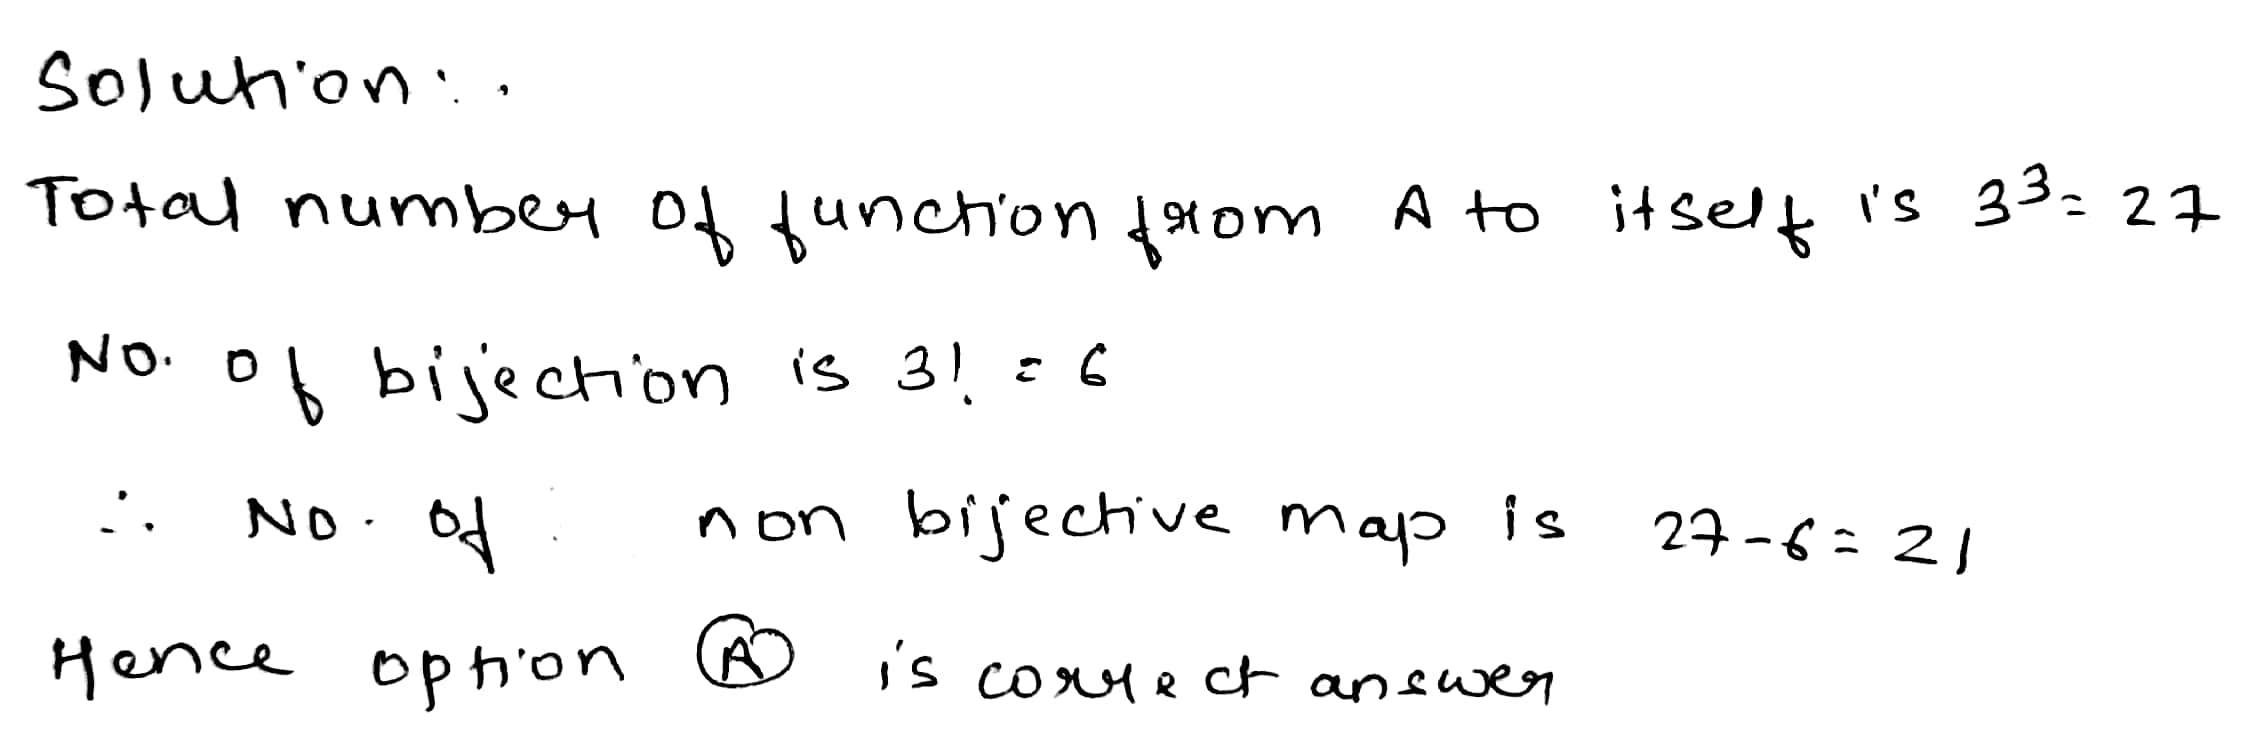 Solution:.
Total number of function from A to itself is 3³ = 27
No. of bijection is 3! = 6
∴ No. of non bijective map is 27-6 = 21
Hence option Ⓐ is correct answer